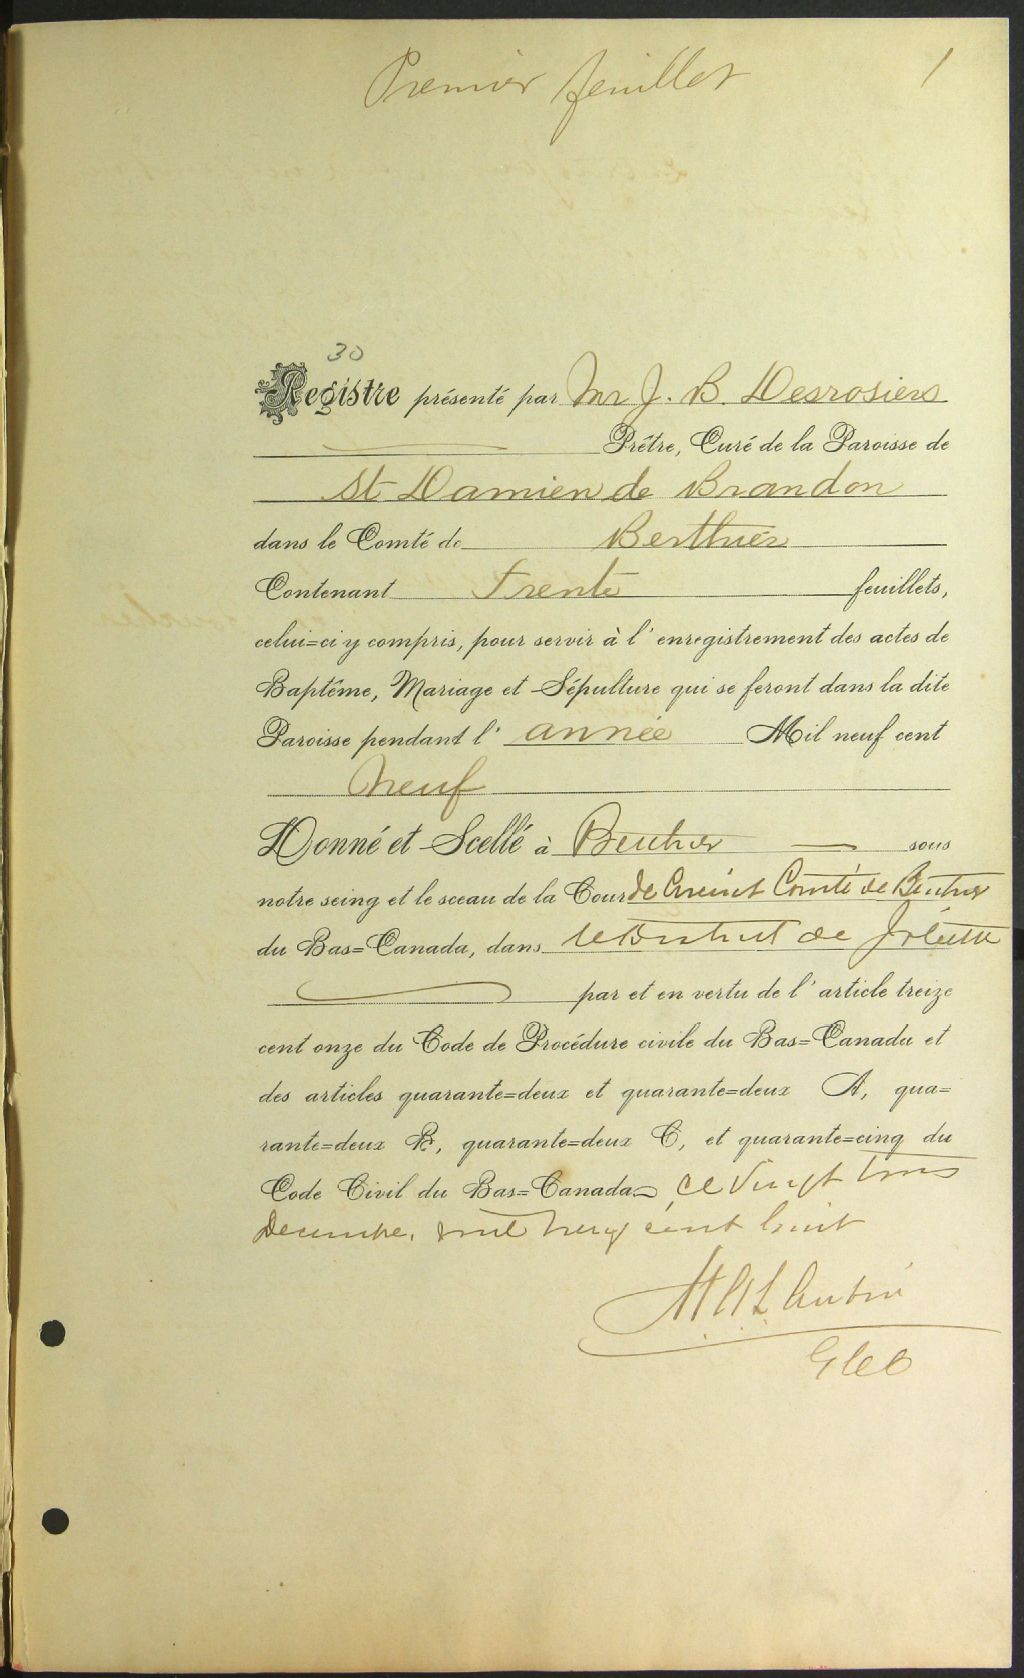 Premier feuillet 1
30
Registre présenté par Mr J. B. Desrosiers
Prêtre, Curé de la Paroisse de
St Damien de Brandon
dans le Comté de Berthier
Contenant Trente feuillets,
celui=ci y compris, pour servir à l'enregistrement des actes de
Baptême, Mariage et Sépulture qui se feront dans la dite
Paroisse pendant l'année Mil neuf cent
Neuf
Donné et Scellé à Berthier sous
notre seing et le sceau de la Cour de Circuit Comté de Berthier
du Bas=Canada, dans le District de Joliette
par et en vertu de l'article treize
cent onze du Code de Procédure civile du Bas=Canada et
des articles quarante=deux et quarante=deux A, qua=
rante=deux B, quarante=deux C, et quarante=cinq du
Code Civil du Bas=Canada ce vingt trois
Decembre, mil neuf cent huit
Aubin